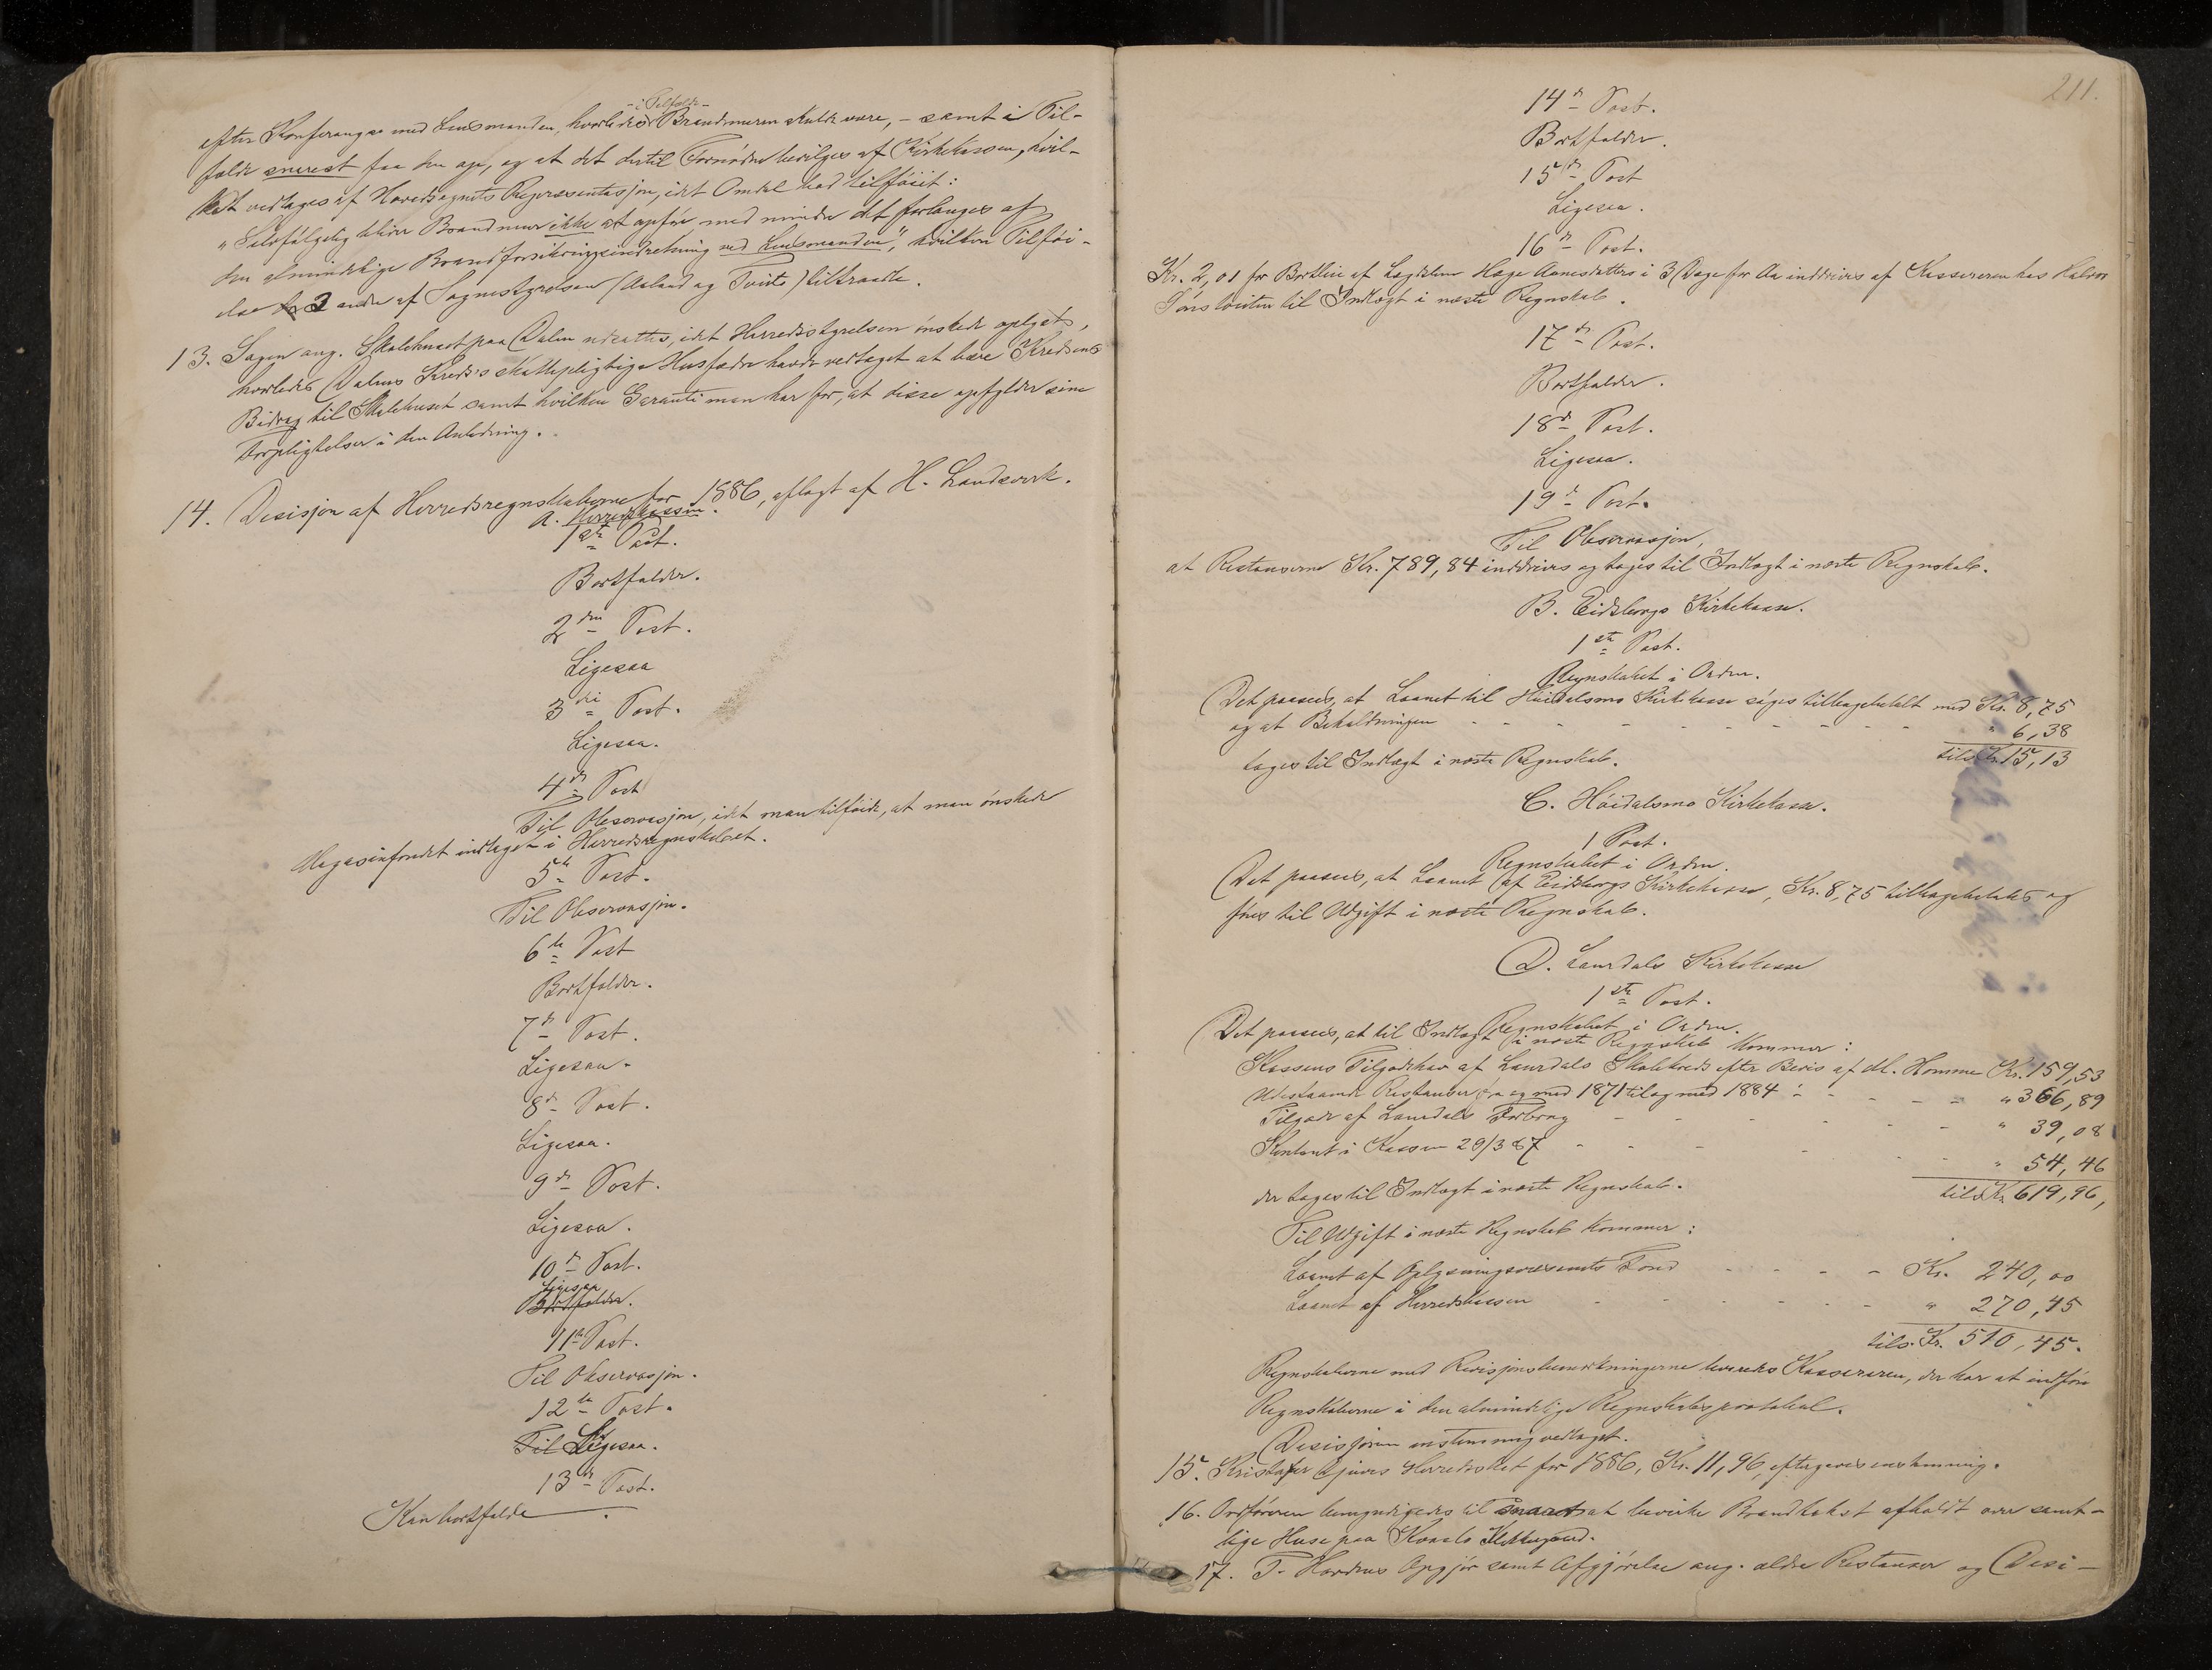 efter Konferanse med Lensmanden, hvorledes -i Tilfælde- Brandmuren skulde være, - samt i Til-
fælde snarest faa den op, og at det dertil Fornødne bevilges af Kirkekassen, hvil-
ket vedtages af Hovedsognets Repræsentasjon, idet Omdal had tilføiet:
"Selvfølgelig bliver Brandmur ikke at opføre med mindre det forlanges af
den almindelige Brandforsikringsindretning ved Lensmanden", hvilken Tilføi-
else 3 andre af Sognestyrelsen (Aaland og Tveito) tiltraadte.
13. Sagen ang. Skolehuset paa Dalen udsattes, idet Herredsstyrelsen ønskede oplyst,
hvorledes Dalens Kreds's skattepligtige Husfædre havde vedtaget at bære Kredsens
Bidrag til Skolehuset samt hvilken Garanti man har for, at disse opfylder sine
Forpligtelser i den Anledning.
14. Desisjon af Herredsregnskaberne for 1886, aflagt af H. Landsverk.
A. Herredskassen.
1ste Post.
Bortfalder.
2den Post.
Ligesaa
3die Post.
Ligesaa.
4de Post
Til Observasjon, idet man tilføide, at man ønskede
Magasinfondet indtaget i Herredsregnskabet.
5te Post.
Til Observasjon.
6te Post
Bortfalder.
7de Post.
Ligesaa.
8de Post.
Ligesaa.
9de Post.
Ligesaa.
10de Post.
Ligesaa
Bortfalder.
11te Post.
Til Observasjon.
12te Post.
Til Ligesaa.
13de Post.
Kan bortfalde
211.
14de Post.
Bortfalder.
15de Post
Ligesaa.
16de Post.
Kr. 2,01 for Bortleie af Lægdslem Hæge Aanesdatters i 3 Dage for Aa inddrives af Kassereren hos Halvor
Jønstveiten til Indtægt i næste Regnskab.
17de Post.
Bortfalder.
18de Post.
Ligesaa.
19de Post.
Til Observasjon,
at Restanserne Kr. 789,84 inddrives og tages til Indtægt i næste Regnskab.
B. Eidsborgs Kirkekasse.
1ste Post.
Regnskabet i Orden.
Det paasees, at Laanet til Høidalsmo Kirkekasse søges tilbagebetalt med Kr. 8,75
og at Beholdningen " 6,38
tages til Indtægt i næste Regnskab. tils. Kr. 15,13
C. Høidalsmo Kirkekasse.
1 Post.
Regnskabet i Orden.
Det paasees, at Laanet af Eidsborgs Kirkekasse, Kr. 8,75 tilbagebetales og
føres til Udgift i næste Regnskab.
D. Laurdals Kirkekasse
1ste Post.
Regnskabet i Orden.
Det paasees, at til Indtægt i næste Regnskab kommer:
Kassens Tilgodehav af Laurdals Skolekreds efter Bevis af M. Homme Kr. 159,53
Udestaaende Restanser fra og med 1871 til og med 1884 " 366,89
Tilgode af Laurdals Forbrug " 39,08
Kontant i Kassen 29/3 87 " 54,46
der tages til Indtægt i næste Regnskab. tils. Kr. 619,96,
Til Udgift i næste Regnskab kommer:
Laanet af Oplysningsvæsenets Fond Kr. 240,00
Laanet af Herredskassen " 270,45
tils. Kr. 510,45.
Regnskaberne med Revisjonsbemærkningerne leveres Kassereren, der har at indføre
Regnskaberne i den almindelige Regnskabsprotokol.
Desisjonen enstemmig vedtaget.
15. Kristofer Gjuves Herredsskat for 1886, Kr. 11,96, eftergives enstemmig.
16. Ordføreren bemyndigedes til snarest at bevirke Brandtakst afholdt over samt-
lige Huse paa Klokkergaard.
17. T. Hovdens Opgjør samt Afgjørelse ang. ældre Restanser og Desi-